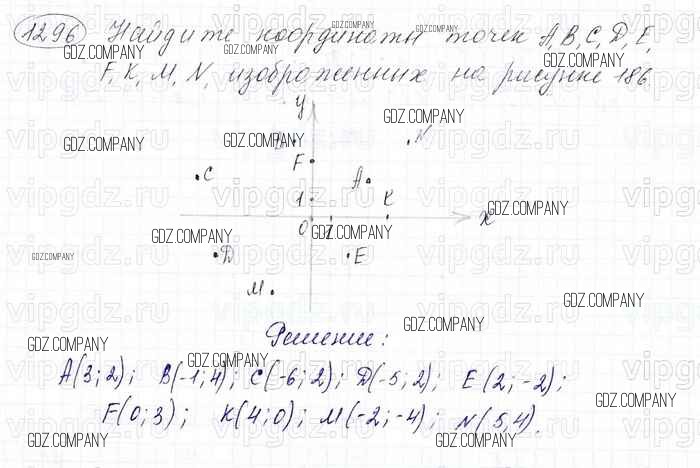 1296 Найдите координаты точек A, B, C, D, E,
F, K, M, N, изображенных на рисунке 186.
y
N
F
C
A
K
1
0
1
x
D
E
M
Решение:
A(3; 2); B(-1; 4); C(-6; 2); D(-5; 2); E(2; -2);
F(0; 3); K(4; 0); M(-2; -4); N(5, 4).
GDZ.COMPANY
vipgdz.ru